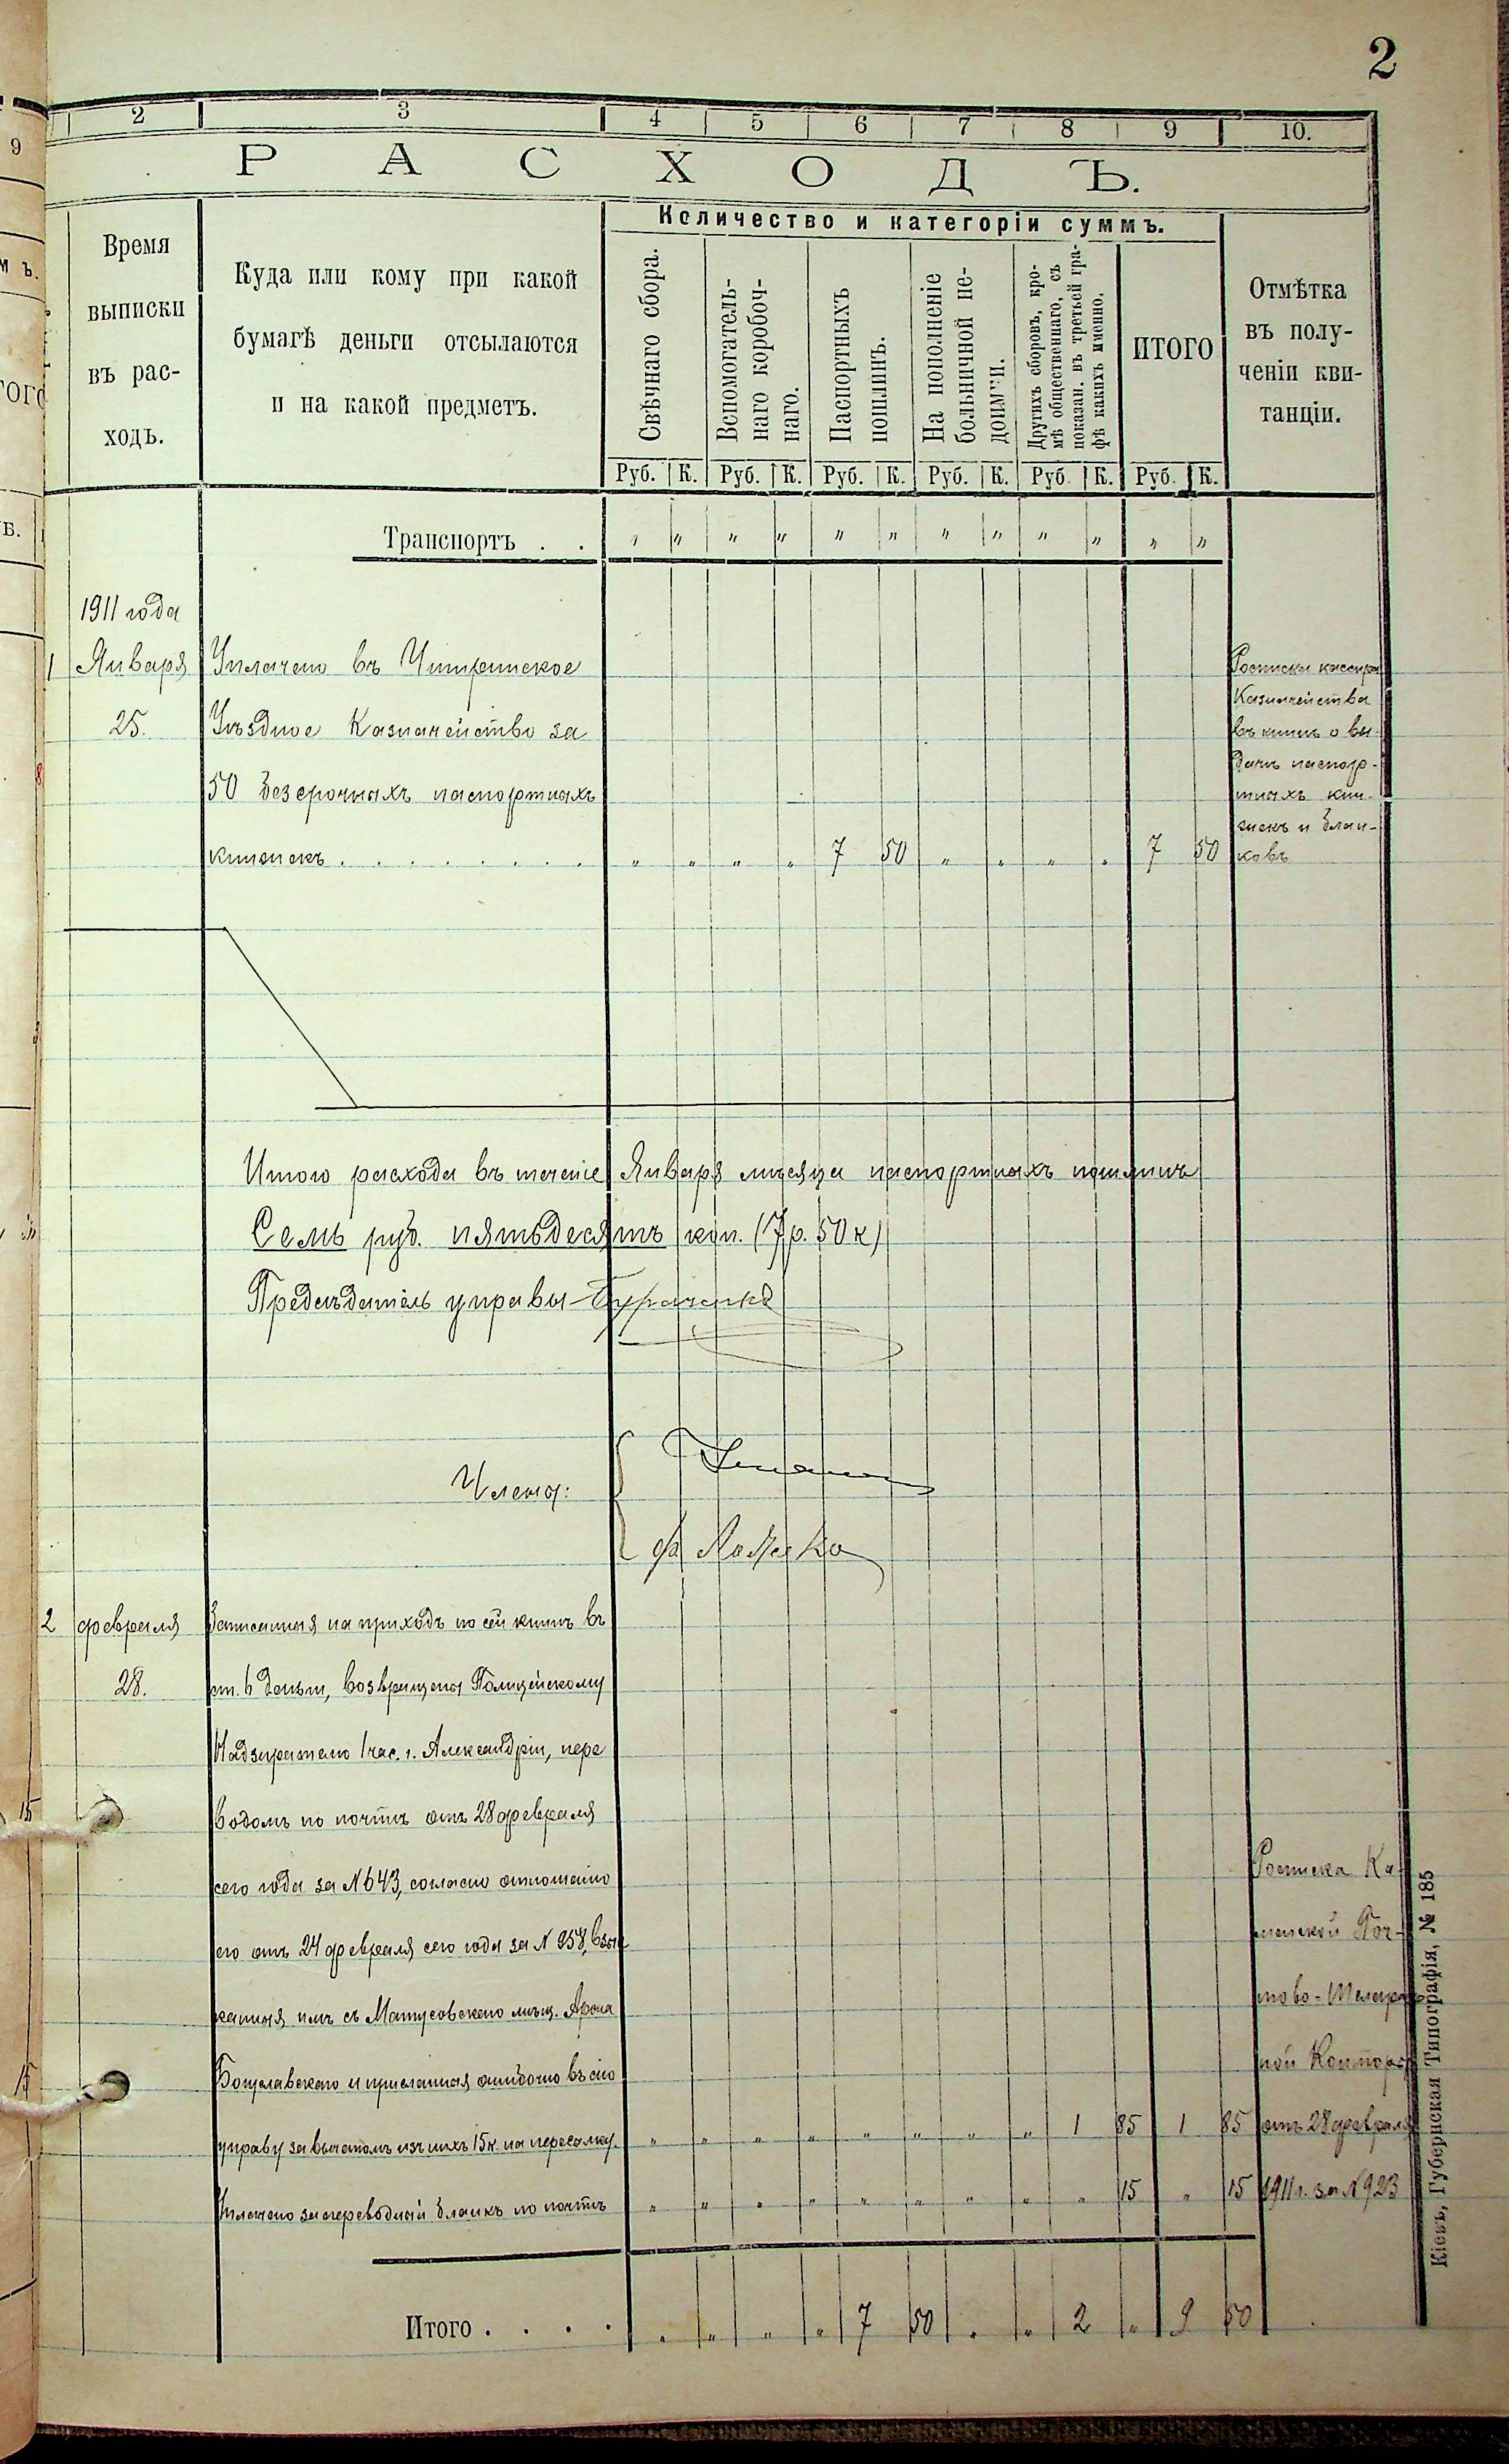 2
2 3 4 5 6 7 8 9 10.
РАСХОДЪ.
Время
выписки
въ рас-
ходъ.
Куда или кому при какой
бумагѣ деньги отсылаются
и на какой предметъ.
Количество и категоріи суммъ.
Свѣчнаго сбора.
Вспомогатель-
наго коробоч-
наго.
Паспортныхъ
пошлинъ.
На пополненіе
больничной не-
доимки.
Другихъ сборовъ, кро-
мѣ общественнаго, съ
показан. въ третьей гра-
фѣ какихъ именно.
ИТОГО
Отмѣтка
въ полу-
ченіи кви-
танціи.
Руб. К. Руб. К. Руб. К. Руб. К. Руб. К. Руб. К.
Транспортъ . . „ „ „ „ „ „ „ „ „ „ „ „
1911 года
1 Января
25.
Уплачено въ Чигиринское
Уѣздное Казначейство за
50 безсрочныхъ паспортныхъ
книжекъ . . . . . . . „ „ „ „ 7 50 „ „ „ „ 7 50
Росписка кассира
Казначейства
въ книгѣ о вы-
дачѣ паспор-
тныхъ кни-
жекъ и блан-
ковъ
Итого расхода въ теченіе Января мѣсяца паспортныхъ пошлинъ
Семь руб. пятьдесятъ коп. (7 р. 50 к)
Предсѣдатель управы
Члены:
2 февраля
28.
Записанныя на приходъ по сей книгѣ въ
ст. 6 деньги, возвращены Полицейскому
Надзирателю 1 час. г. Александріи, пере
водомъ по почтѣ отъ 28 февраля
сего года за № 643, согласно отношенію
его отъ 24 февраля сего года за № 958, взы
канныя имъ съ Матусовскаго мѣщ. Арона
Богуславскаго и присланныя ошибочно въ сію
управу за вычетомъ изъ нихъ 15 к. на пересылку. „ „ „ „ „ „ „ „ 1 85 1 85
Уплачено за переводный бланкъ по почтѣ „ „ „ „ „ „ „ „ „ 15 „ 15
Росписка Ка-
менской Поч-
тово-Телеграф
ной Конторы
отъ 28 февраля
1911 г. за № 923
Итого . . . . „ „ „ „ 7 50 „ „ 2 „ 9 50
Кіевъ, Губернская Типографія, № 185